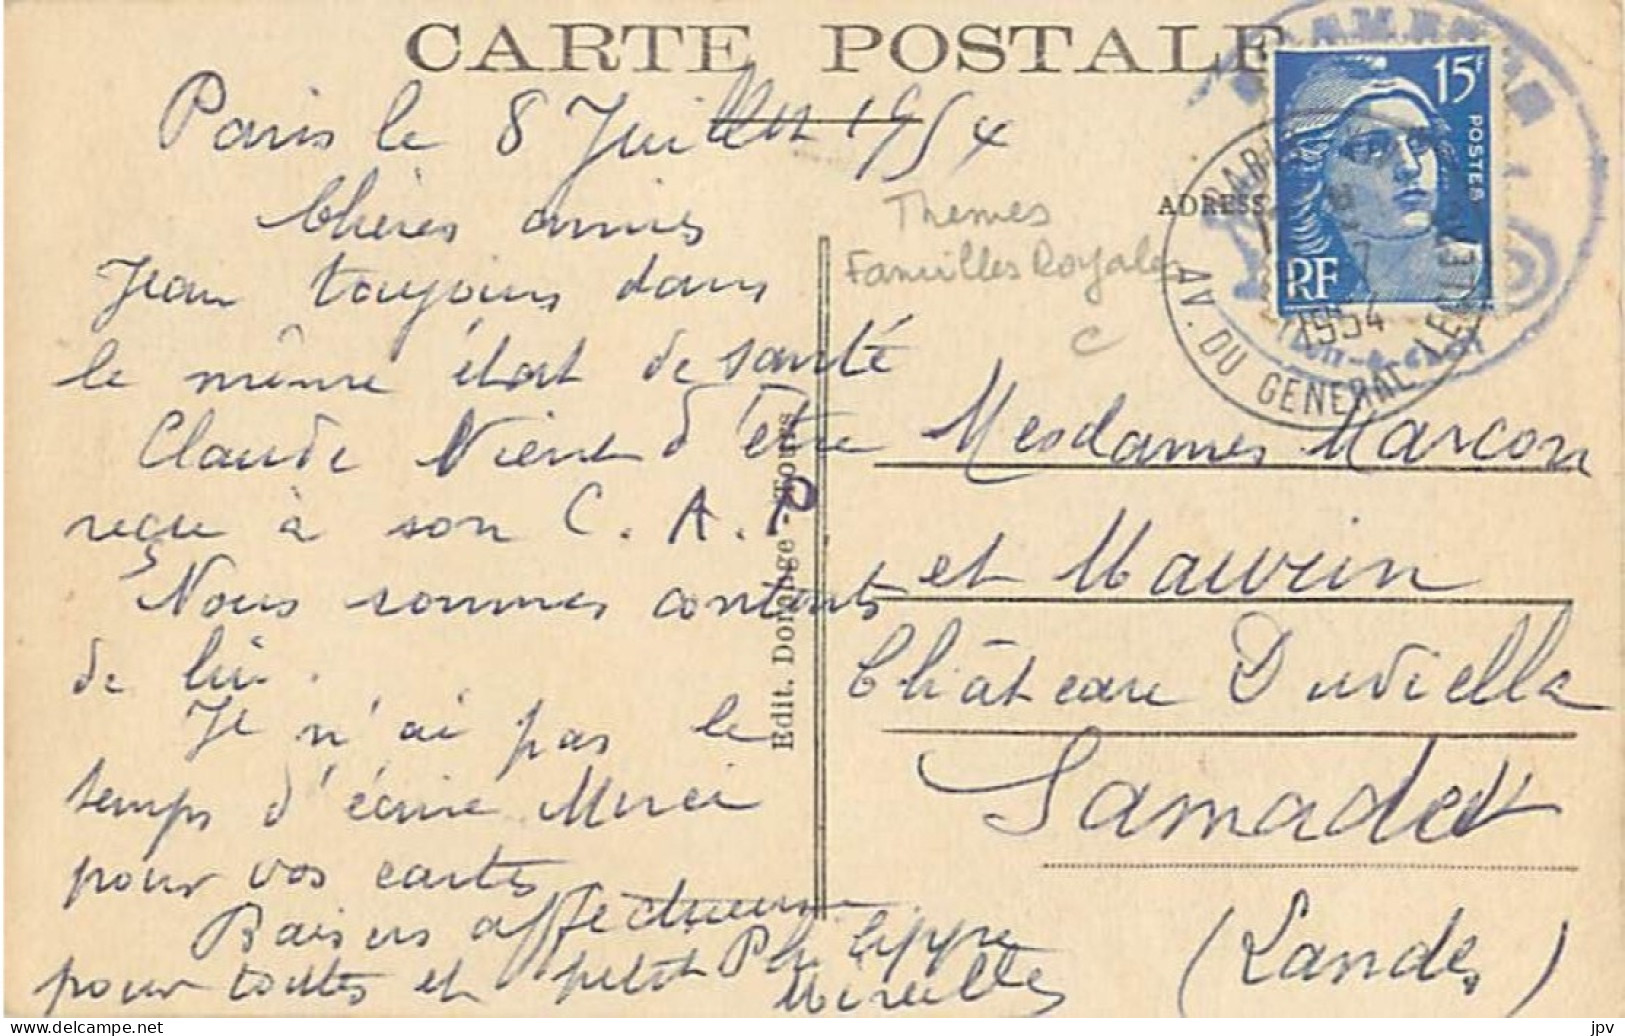 CARTE POSTALE
Paris le 8 Juillet 1954
Chères amies
Jean toujours dans
le même état de santé
Claude Vient d'être
reçu à son C.A.P
Nous sommes contents
de lui.
Je n'ai pas le
temps d'écrire Merci
pour vos cartes
Baisers affectueux
pour toutes et petit Philippe
Mireille
Edit. Dorange - Tours
Themes
Familles Royales
C
ADRESSE
15F
POSTES
RF
PARIS
1954
AV. DU GENERAL LECLERC
Mesdames Marcon
et Maurin
Château Duvielle
Samadet
(Landes)
delcampe.net
jpv